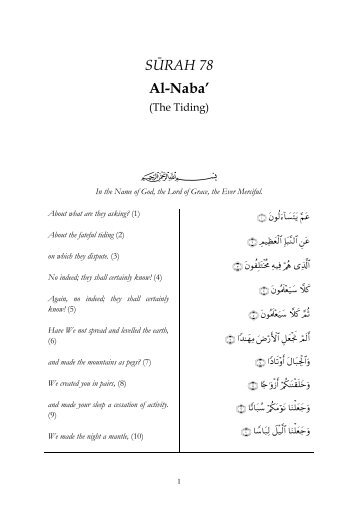 SŪRAH 78
Al-Naba’
(The Tiding)
﷽
In the Name of God, the Lord of Grace, the Ever Merciful.
About what are they asking? (1)
About the fateful tiding (2)
on which they dispute. (3)
No indeed; they shall certainly know! (4)
Again, no indeed; they shall certainly
know! (5)
Have We not spread and levelled the earth,
(6)
and made the mountains as pegs? (7)
We created you in pairs, (8)
and made your sleep a cessation of activity.
(9)
We made the night a mantle, (10)
عَمَّ يَتَسَآءَلُونَ ۝١
عَنِ ٱلنَّبَإِ ٱلْعَظِيمِ ۝٢
ٱلَّذِى هُمْ فِيهِ مُخْتَلِفُونَ ۝٣
كَلَّا سَيَعْلَمُونَ ۝٤
ثُمَّ كَلَّا سَيَعْلَمُونَ ۝٥
أَلَمْ نَجْعَلِ ٱلْأَرْضَ مِهَـٰدًا ۝٦
وَٱلْجِبَالَ أَوْتَادًا ۝٧
وَخَلَقْنَـٰكُمْ أَزْوَٰجًا ۝٨
وَجَعَلْنَا نَوْمَكُمْ سُبَاتًا ۝٩
وَجَعَلْنَا ٱلَّيْلَ لِبَاسًا ۝١٠
1